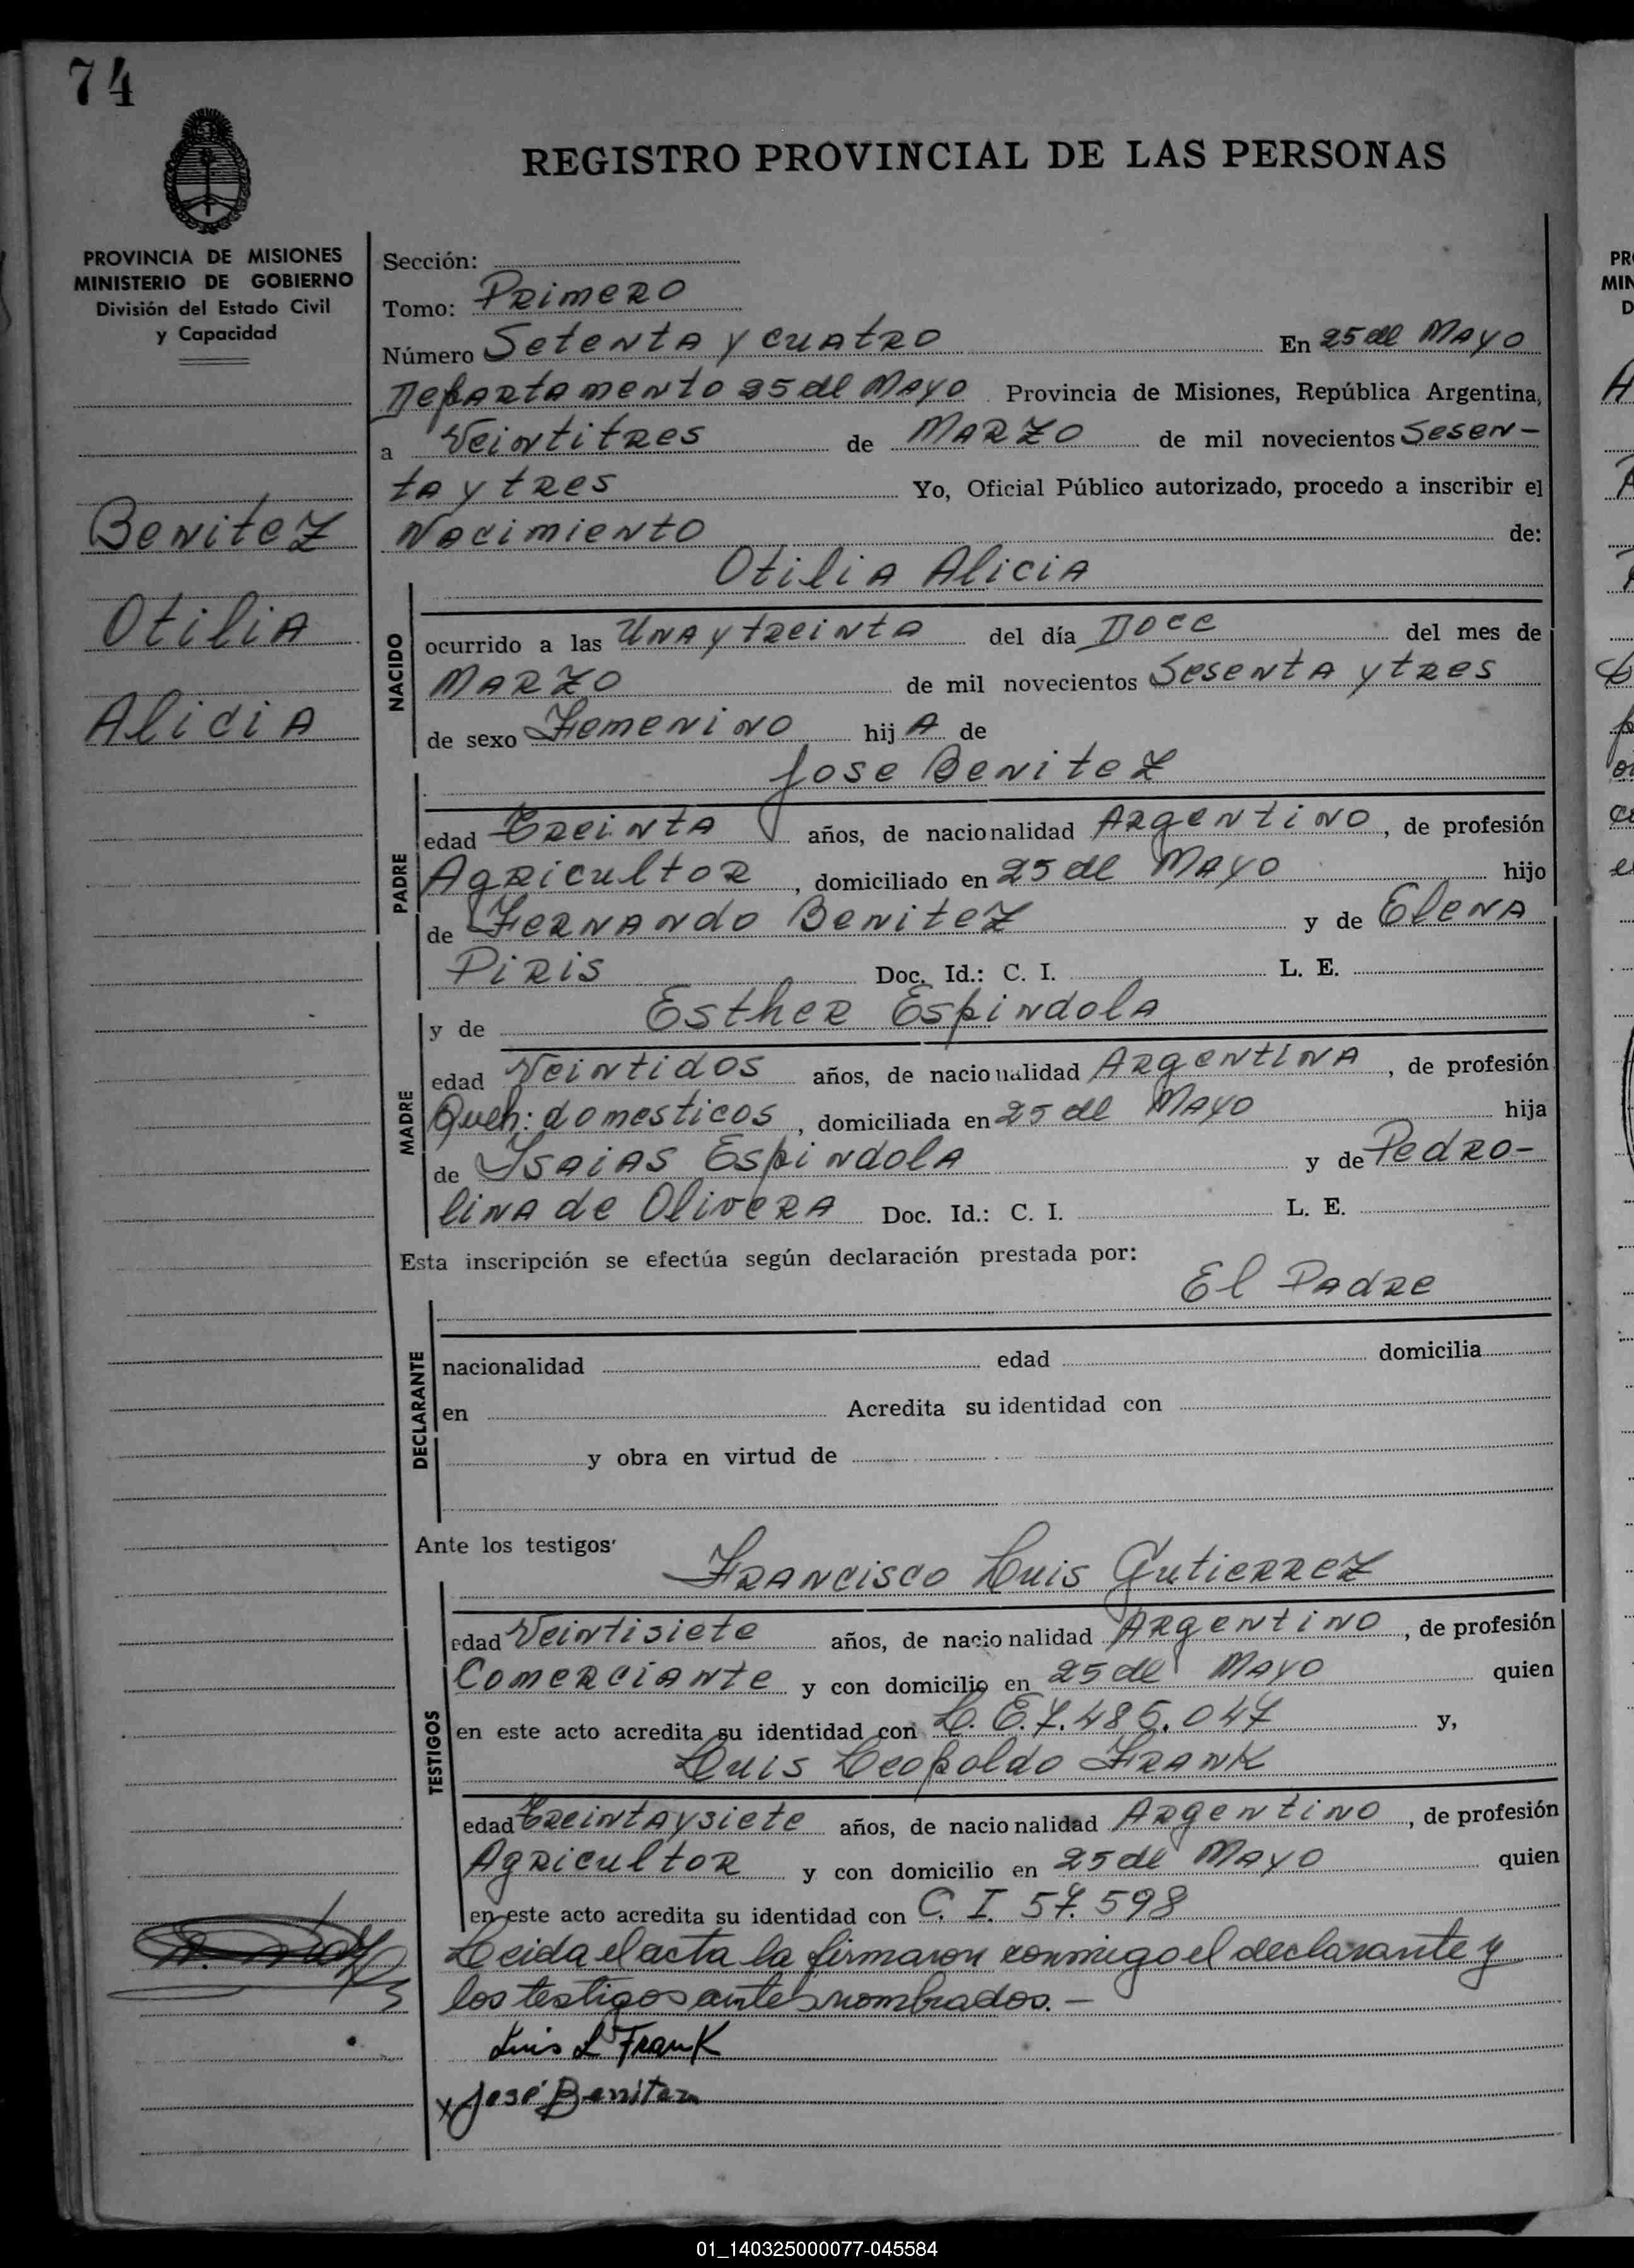 74
REGISTRO PROVINCIAL DE LAS PERSONAS
PROVINCIA DE MISIONES
MINISTERIO DE GOBIERNO
División del Estado Civil
y Capacidad
Benitez
Otilia
Alicia
Sección:
Tomo: Primero
Número Setenta y cuatro En 25 de Mayo
Departamento 25 de Mayo Provincia de Misiones, República Argentina,
a Veintitres de Marzo de mil novecientos Sesen-
ta y tres Yo, Oficial Público autorizado, procedo a inscribir el
Nacimiento de:
Otilia Alicia
NACIDO
ocurrido a las Una y treinta del día Doce del mes de
Marzo de mil novecientos Sesenta y tres
de sexo Femenino hij A de
Jose Benitez
PADRE
edad Treinta años, de nacionalidad Argentino, de profesión
Agricultor, domiciliado en 25 de Mayo hijo
de Fernando Benitez y de Elena
Piris Doc. Id.: C. I. L. E.
MADRE
y de Esther Espindola
edad Veintidos años, de nacionalidad Argentina, de profesión
Queh: domesticos, domiciliada en 25 de Mayo hija
de Isaias Espindola y de Pedro-
lina de Olivera Doc. Id.: C. I. L. E.
Esta inscripción se efectúa según declaración prestada por:
El Padre
DECLARANTE
nacionalidad edad domicilia
en Acredita su identidad con
y obra en virtud de
Ante los testigos
Francisco Luis Gutierrez
TESTIGOS
edad Veintisiete años, de nacionalidad Argentino, de profesión
Comerciante y con domicilio en 25 de Mayo quien
en este acto acredita su identidad con L. E. 7.485.047 y,
Luis Leopoldo Frank
edad Treinta y siete años, de nacionalidad Argentino, de profesión
Agricultor y con domicilio en 25 de Mayo quien
en este acto acredita su identidad con C. I. 57.598
Leida el acta la firmaron conmigo el declarante y
los testigos antes nombrados.-
Luis L Frank
x José Benitez
PR
MIN
D
01_140325000077-045584